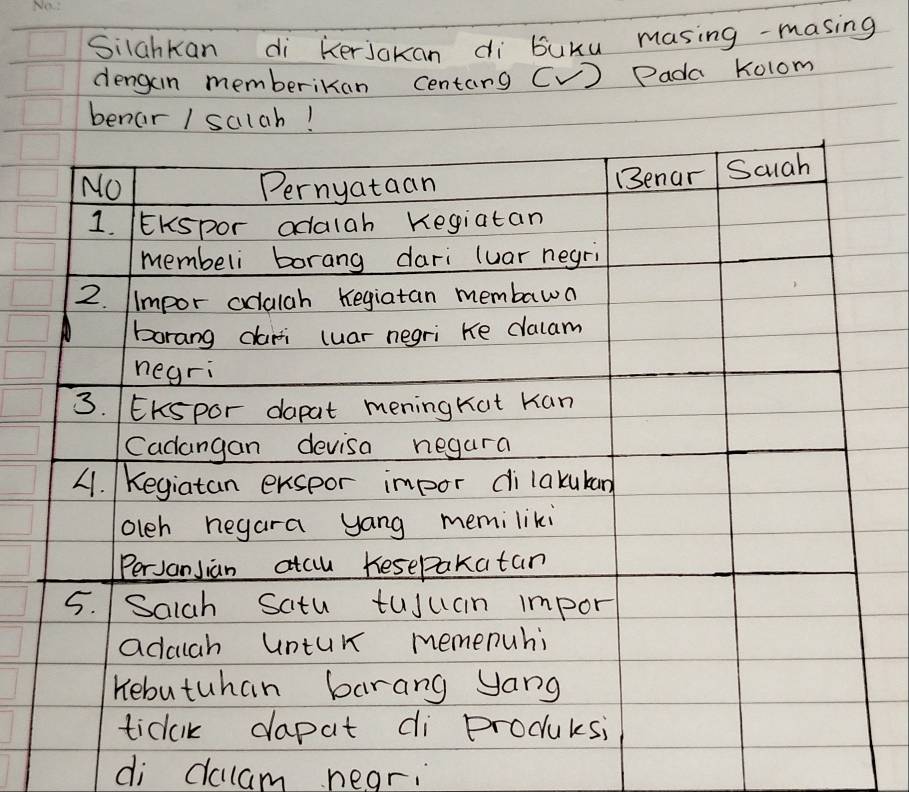 No.:
Silahkan di kerjakan di buku masing-masing
dengan memberikan centang (✓) Pada Kolom
benar / salah !
No Pernyataan Benar Salah
1. Ekspor adalah kegiatan
membeli barang dari luar negri
2. Impor adalah kegiatan membawa
barang dari luar negri ke dalam
negri
3. Ekspor dapat meningkat kan
Cadangan devisa negara
4. Kegiatan ekspor impor di lakukan
oleh negara yang memiliki
Perjanjian atau kesepakatan
5. Salah satu tujuan impor
adalah untuk memenuhi
kebutuhan barang yang
tidak dapat di produksi
di dalam negri